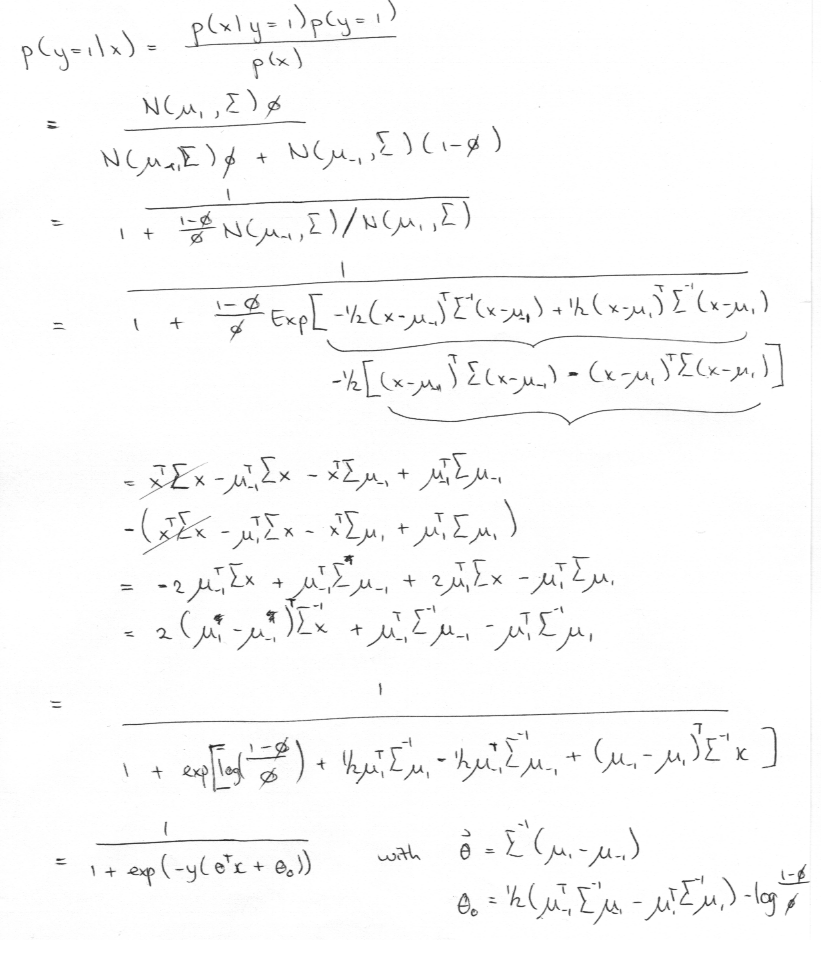 p(y=1|x) = p(x|y=1)p(y=1) / p(x)
= N(μ₁, Σ)ϕ / N(μ₁,Σ)ϕ + N(μ₋₁, Σ)(1-ϕ)
= 1 / 1 + (1-ϕ)/ϕ N(μ₋₁, Σ)/N(μ₁, Σ)
= 1 / 1 + (1-ϕ)/ϕ Exp[-1/2(x-μ₋₁)ᵀΣ⁻¹(x-μ₋₁) + 1/2(x-μ₁)ᵀΣ⁻¹(x-μ₁)
-1/2[(x-μ₋₁)ᵀΣ(x-μ₋₁) - (x-μ₁)ᵀΣ(x-μ₁)]]
= xᵀΣx - μ₋₁ᵀΣx - xᵀΣμ₋₁ + μ₋₁ᵀΣμ₋₁
-(xᵀΣx - μ₁ᵀΣx - xᵀΣμ₁ + μ₁ᵀΣμ₁)
= -2μ₋₁ᵀΣx + μ₋₁ᵀΣμ₋₁ + 2μ₁ᵀΣx - μ₁ᵀΣμ₁
= 2(μ₁ - μ₋₁)ᵀΣ⁻¹x + μ₋₁ᵀΣ⁻¹μ₋₁ - μ₁ᵀΣ⁻¹μ₁
= 1 / 1 + exp[log((1-ϕ)/ϕ) + 1/2μ₁ᵀΣ⁻¹μ₁ - 1/2μ₋₁ᵀΣ⁻¹μ₋₁ + (μ₋₁ - μ₁)ᵀΣ⁻¹x]
= 1 / 1 + exp(-y(θᵀx + θ₀)) with θ⃗ = Σ⁻¹(μ₁ - μ₋₁)
θ₀ = 1/2(μ₋₁ᵀΣ⁻¹μ₋₁ - μ₁ᵀΣ⁻¹μ₁) - log (1-ϕ)/ϕ